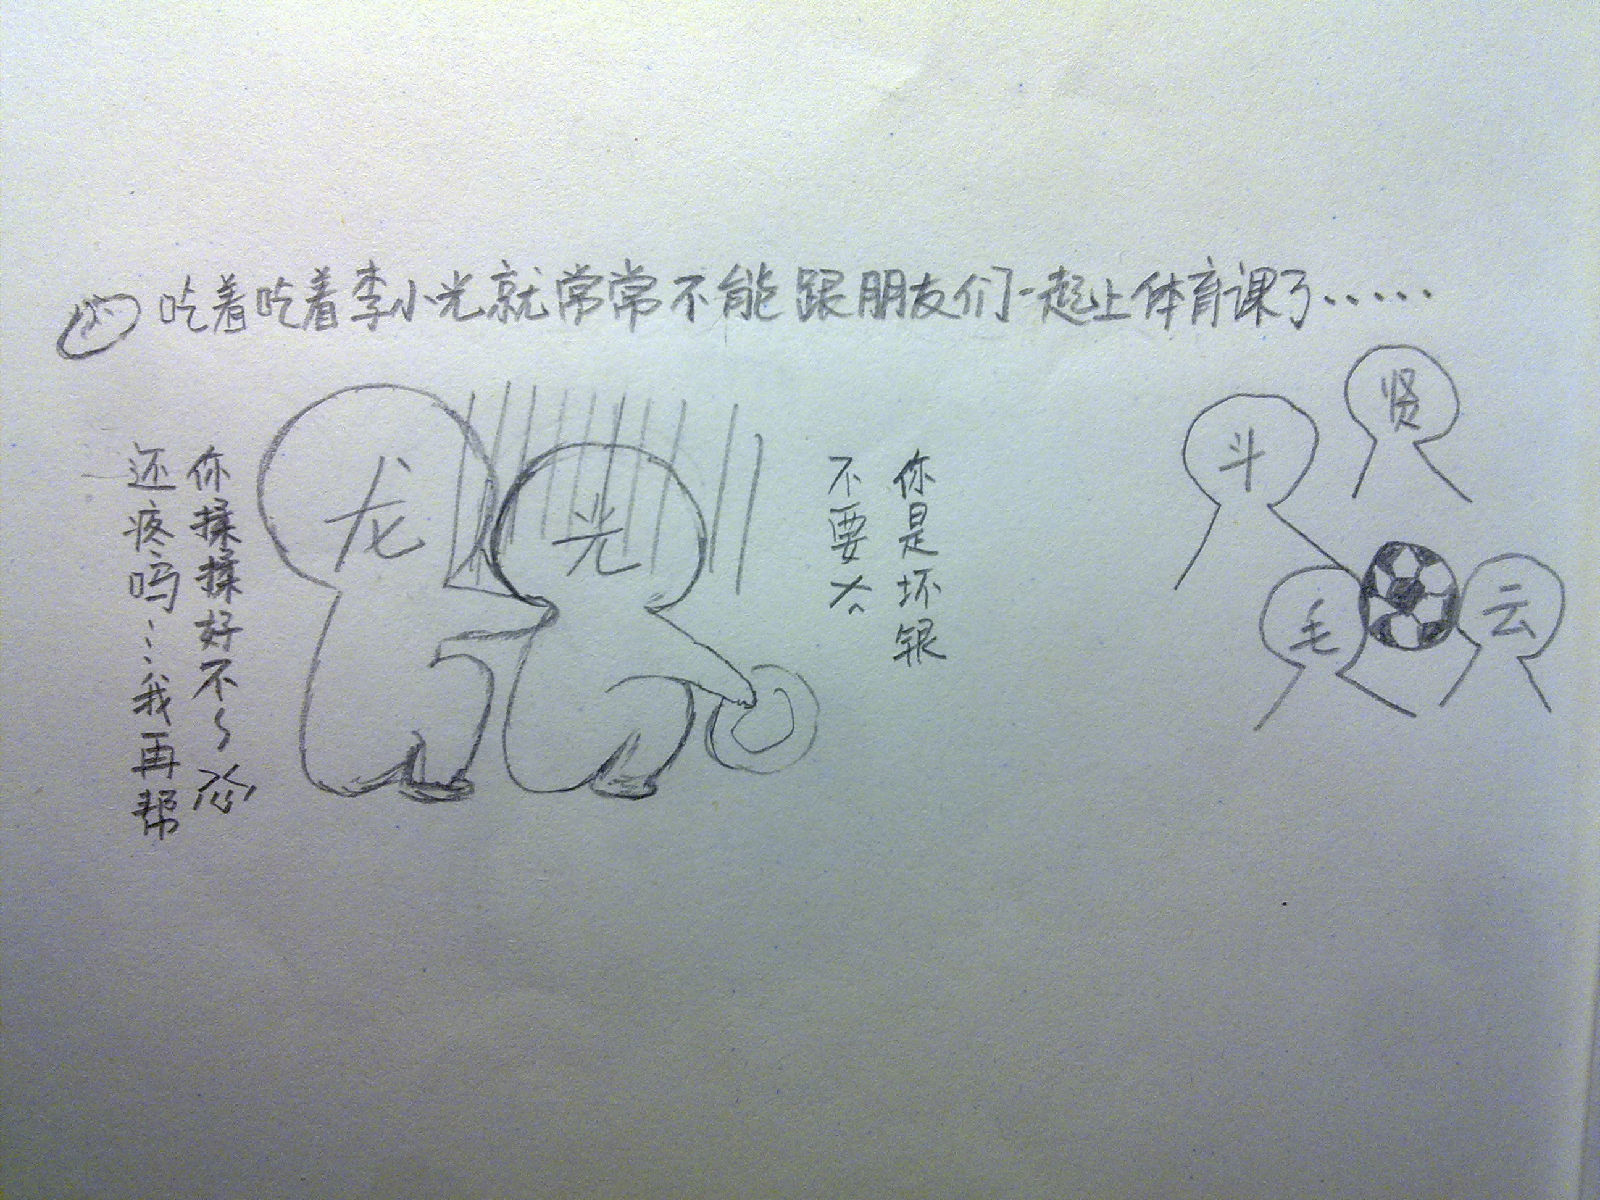 吃着吃着李小光就常常不能跟朋友们一起上体育课了……
还疼吗……我再帮
你揉揉好不~
龙
光
不要
你是坏银
斗
贤
毛
云